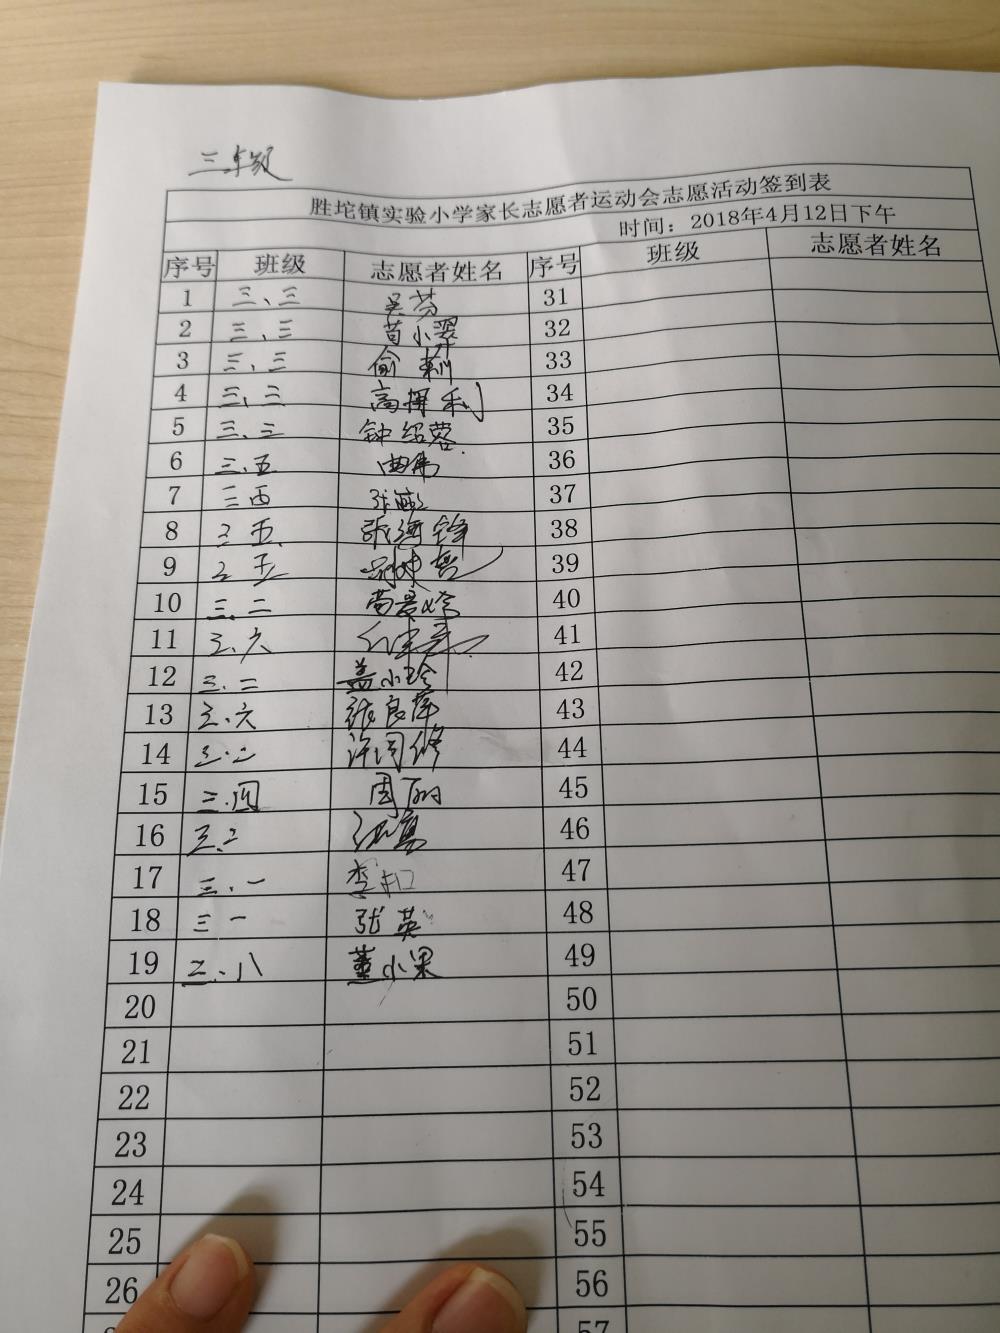 三年级
胜坨镇实验小学家长志愿者运动会志愿活动签到表
时间：2018年4月12日下午
序号 班级 志愿者姓名 序号 班级 志愿者姓名
1 三、三 吴芬 31
2 三、三 苟小翠 32
3 三、三 33
4 三、三 高 利 34
5 三、三 钟绍蓉 35
6 三、五 曲伟 36
7 三 张 37
8 三五 张海锋 38
9 三五 39
10 三、二 40
11 三、六 41
12 三、二 盖小玲 42
13 三、六 张良萍 43
14 三、二 许同修 44
15 三、四 周丽 45
16 三、二 46
17 三、一 李 47
18 三一 张英 48
19 三、八 董小果 49
20 50
21 51
22 52
23 53
24 54
25 55
26 56
57